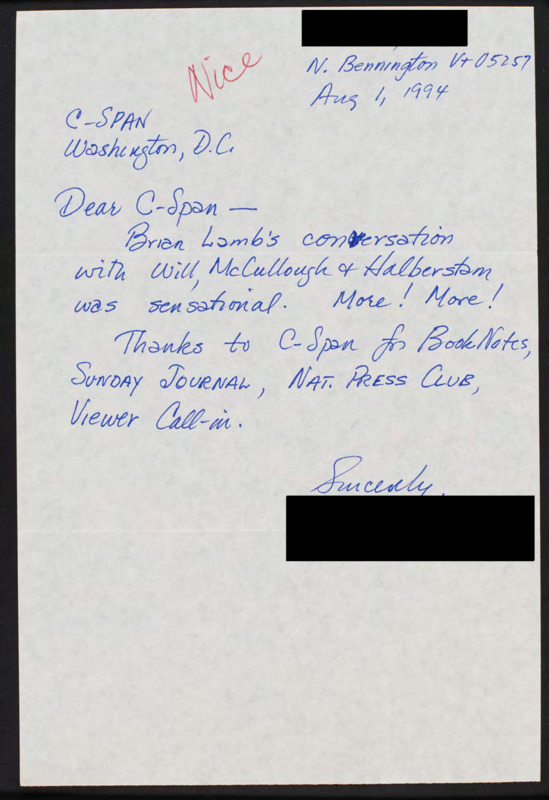 Nice
N. Bennington Vt 05257
Aug 1, 1994
C-SPAN
Washington, D.C.
Dear C-Span —
Brian Lamb's conversation
with Will, McCullough & Halberstam
was sensational. More! More!
Thanks to C-Span for BookNotes,
SUNDAY JOURNAL, NAT. PRESS CLUB,
Viewer Call-in.
Sincerely,